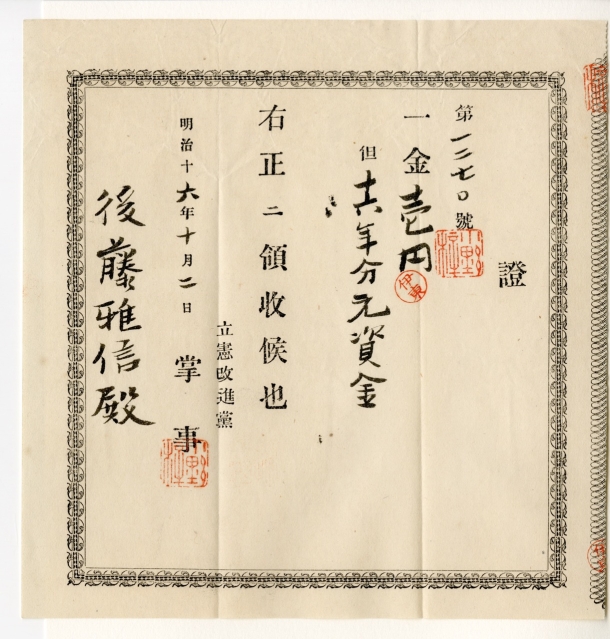 證
第一二七〇號
一金壱円
伊東
但十六年分元資金
右正ニ領收候也
立憲改進黨
明治十六年十月二日 掌事
後藤雅信殿